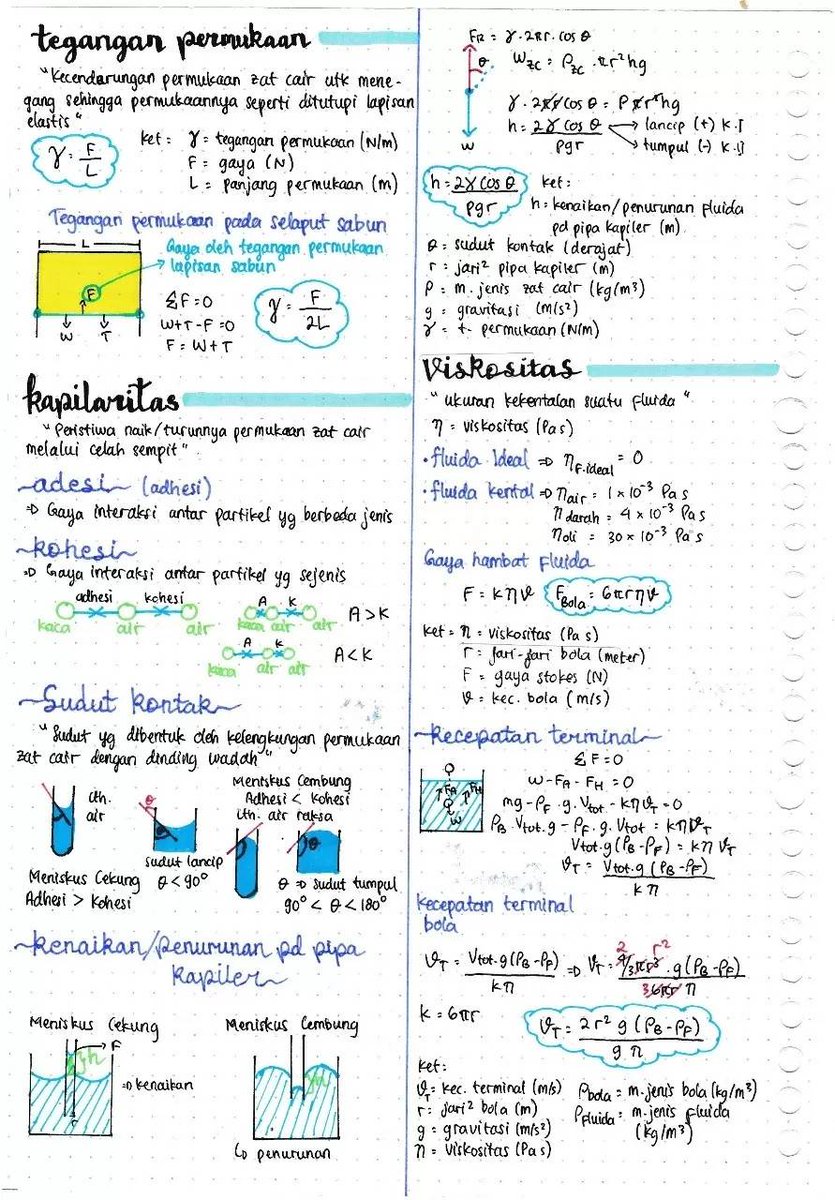 tegangan permukaan
"Kecendarungan permukaan zat cair utk mene-
gang sehingga permukaannya seperti ditutupi lapisan
elastis"
γ = F/L
ket : γ = tegangan permukaan (N/m)
F = gaya (N)
L = panjang permukaan (m)
Tegangan permukaan pada selaput sabun
L
Gaya oleh tegangan permukaan
lapisan sabun
F
W T
ΣF = 0
W+T-F = 0
F = W+T
γ = F/2L
kapilaritas
"Peristiwa naik/turunnya permukaan zat cair
melalui celah sempit".
adesi (adhesi)
⇒ Gaya interaksi antar partikel yg berbeda jenis
kohesi
⇒ Gaya interaksi antar partikel yg sejenis
adhesi kohesi
kaca air air
A K
kaca air air
A > K
A K
kaca air air
A < K
Sudut kontak
"Sudut yg dibentuk oleh kelengkungan permukaan
zat cair dengan dinding wadah"
cth.
air
θ
sudut lancip
θ < 90°
Meniskus Cekung
Adhesi > Kohesi
Meniskus Cembung
Adhesi < Kohesi
cth. air raksa
θ
θ ⇒ sudut tumpul
90° < θ < 180°
kenaikan/penurunan pd pipa
kapiler
Meniskus Cekung
F
h
r
⇒ kenaikan
Meniskus Cembung
h
↳ penurunan
FR = γ · 2πr. cos θ
θ
W
Wzc = ρzc . πr²hg
γ · 2πr cos θ = ρ πr²hg
h = 2γ cos θ / ρgr
→ lancip (+) K.↑
→ tumpul (-) K.↓
h = 2γ cos θ / ρgr
ket :
h = kenaikan/penurunan fluida
pd pipa kapiler (m)
θ = sudut kontak (derajat)
r = jari² pipa kapiler (m)
ρ = m. jenis zat cair (kg/m³)
g = gravitasi (m/s²)
γ = t. permukaan (N/m)
Viskositas
"ukuran kekentalan suatu fluida"
η = viskositas (Pas)
· fluida Ideal ⇒ ηF.ideal = 0
· fluida kental ⇒ ηair = 1 x 10⁻³ Pa s
ηdarah = 4 x 10⁻³ Pa s
ηoli = 30 x 10⁻³ Pa s
Gaya hambat fluida
F = kηϑ
FBola = 6πrηϑ
ket = η = viskositas (Pa s)
r = jari-jari bola (meter)
F = gaya stokes (N)
ϑ = kec. bola (m/s)
kecepatan terminal
FA FH
W
ΣF = 0
W - FA - FH = 0
mg - ρF . g. Vtot - kηϑT = 0
ρB . Vtot. g - ρF. g. Vtot = kηϑT
Vtot. g (ρB - ρF) = kη ϑT
ϑT = Vtot. g (ρB - ρF) / kη
kecepatan terminal
bola
ϑT = Vtot. g (ρB - ρF) / kη ⇒ ϑT = 2 4/3 πr³ r² . g (ρB - ρF) / 3 6πr η
k = 6πr
ϑT = 2 r² g (ρB - ρF) / 9 η
ket :
ϑT = kec. terminal (m/s)
r = jari² bola (m)
g = gravitasi (m/s²)
η = Viskositas (Pas)
ρbola = m. jenis bola (kg/m³)
ρFluida = m. jenis fluida
(kg/m³)